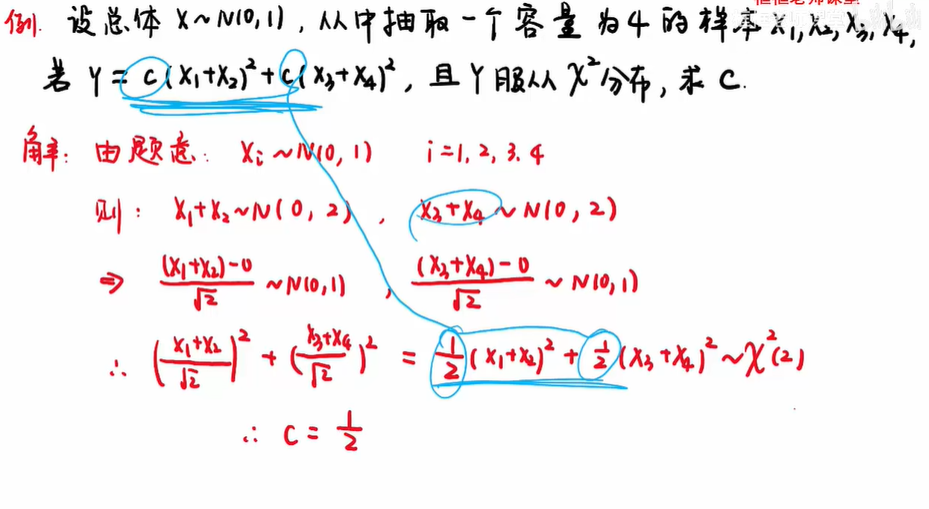 框框老师课堂
例. 设总体 X~N(0,1), 从中抽取一个容量为4的样本 X₁,X₂,X₃,X₄,
若 Y = c(X₁+X₂)² + c(X₃+X₄)², 且 Y 服从 χ² 分布, 求 C.
解: 由题意: Xᵢ~N(0,1) i=1,2,3.4
则: X₁+X₂~N(0,2), X₃+X₄~N(0,2)
⇒ ((X₁+X₂)-0)/√2 ~N(0,1), ((X₃+X₄)-0)/√2 ~N(0,1)
∴ ((X₁+X₂)/√2)² + ((X₃+X₄)/√2)² = 1/2(X₁+X₂)² + 1/2(X₃+X₄)² ~χ²(2)
∴ C = 1/2